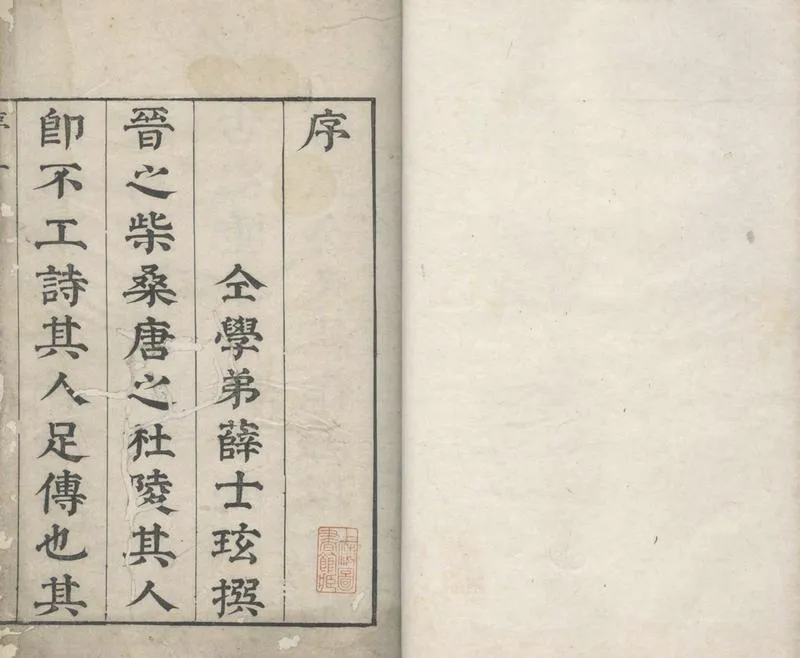 序
仝學弟薛士玹撰
晉之柴桑唐之杜陵其人
卽不工詩其人足傳也其
上海圖
書館藏